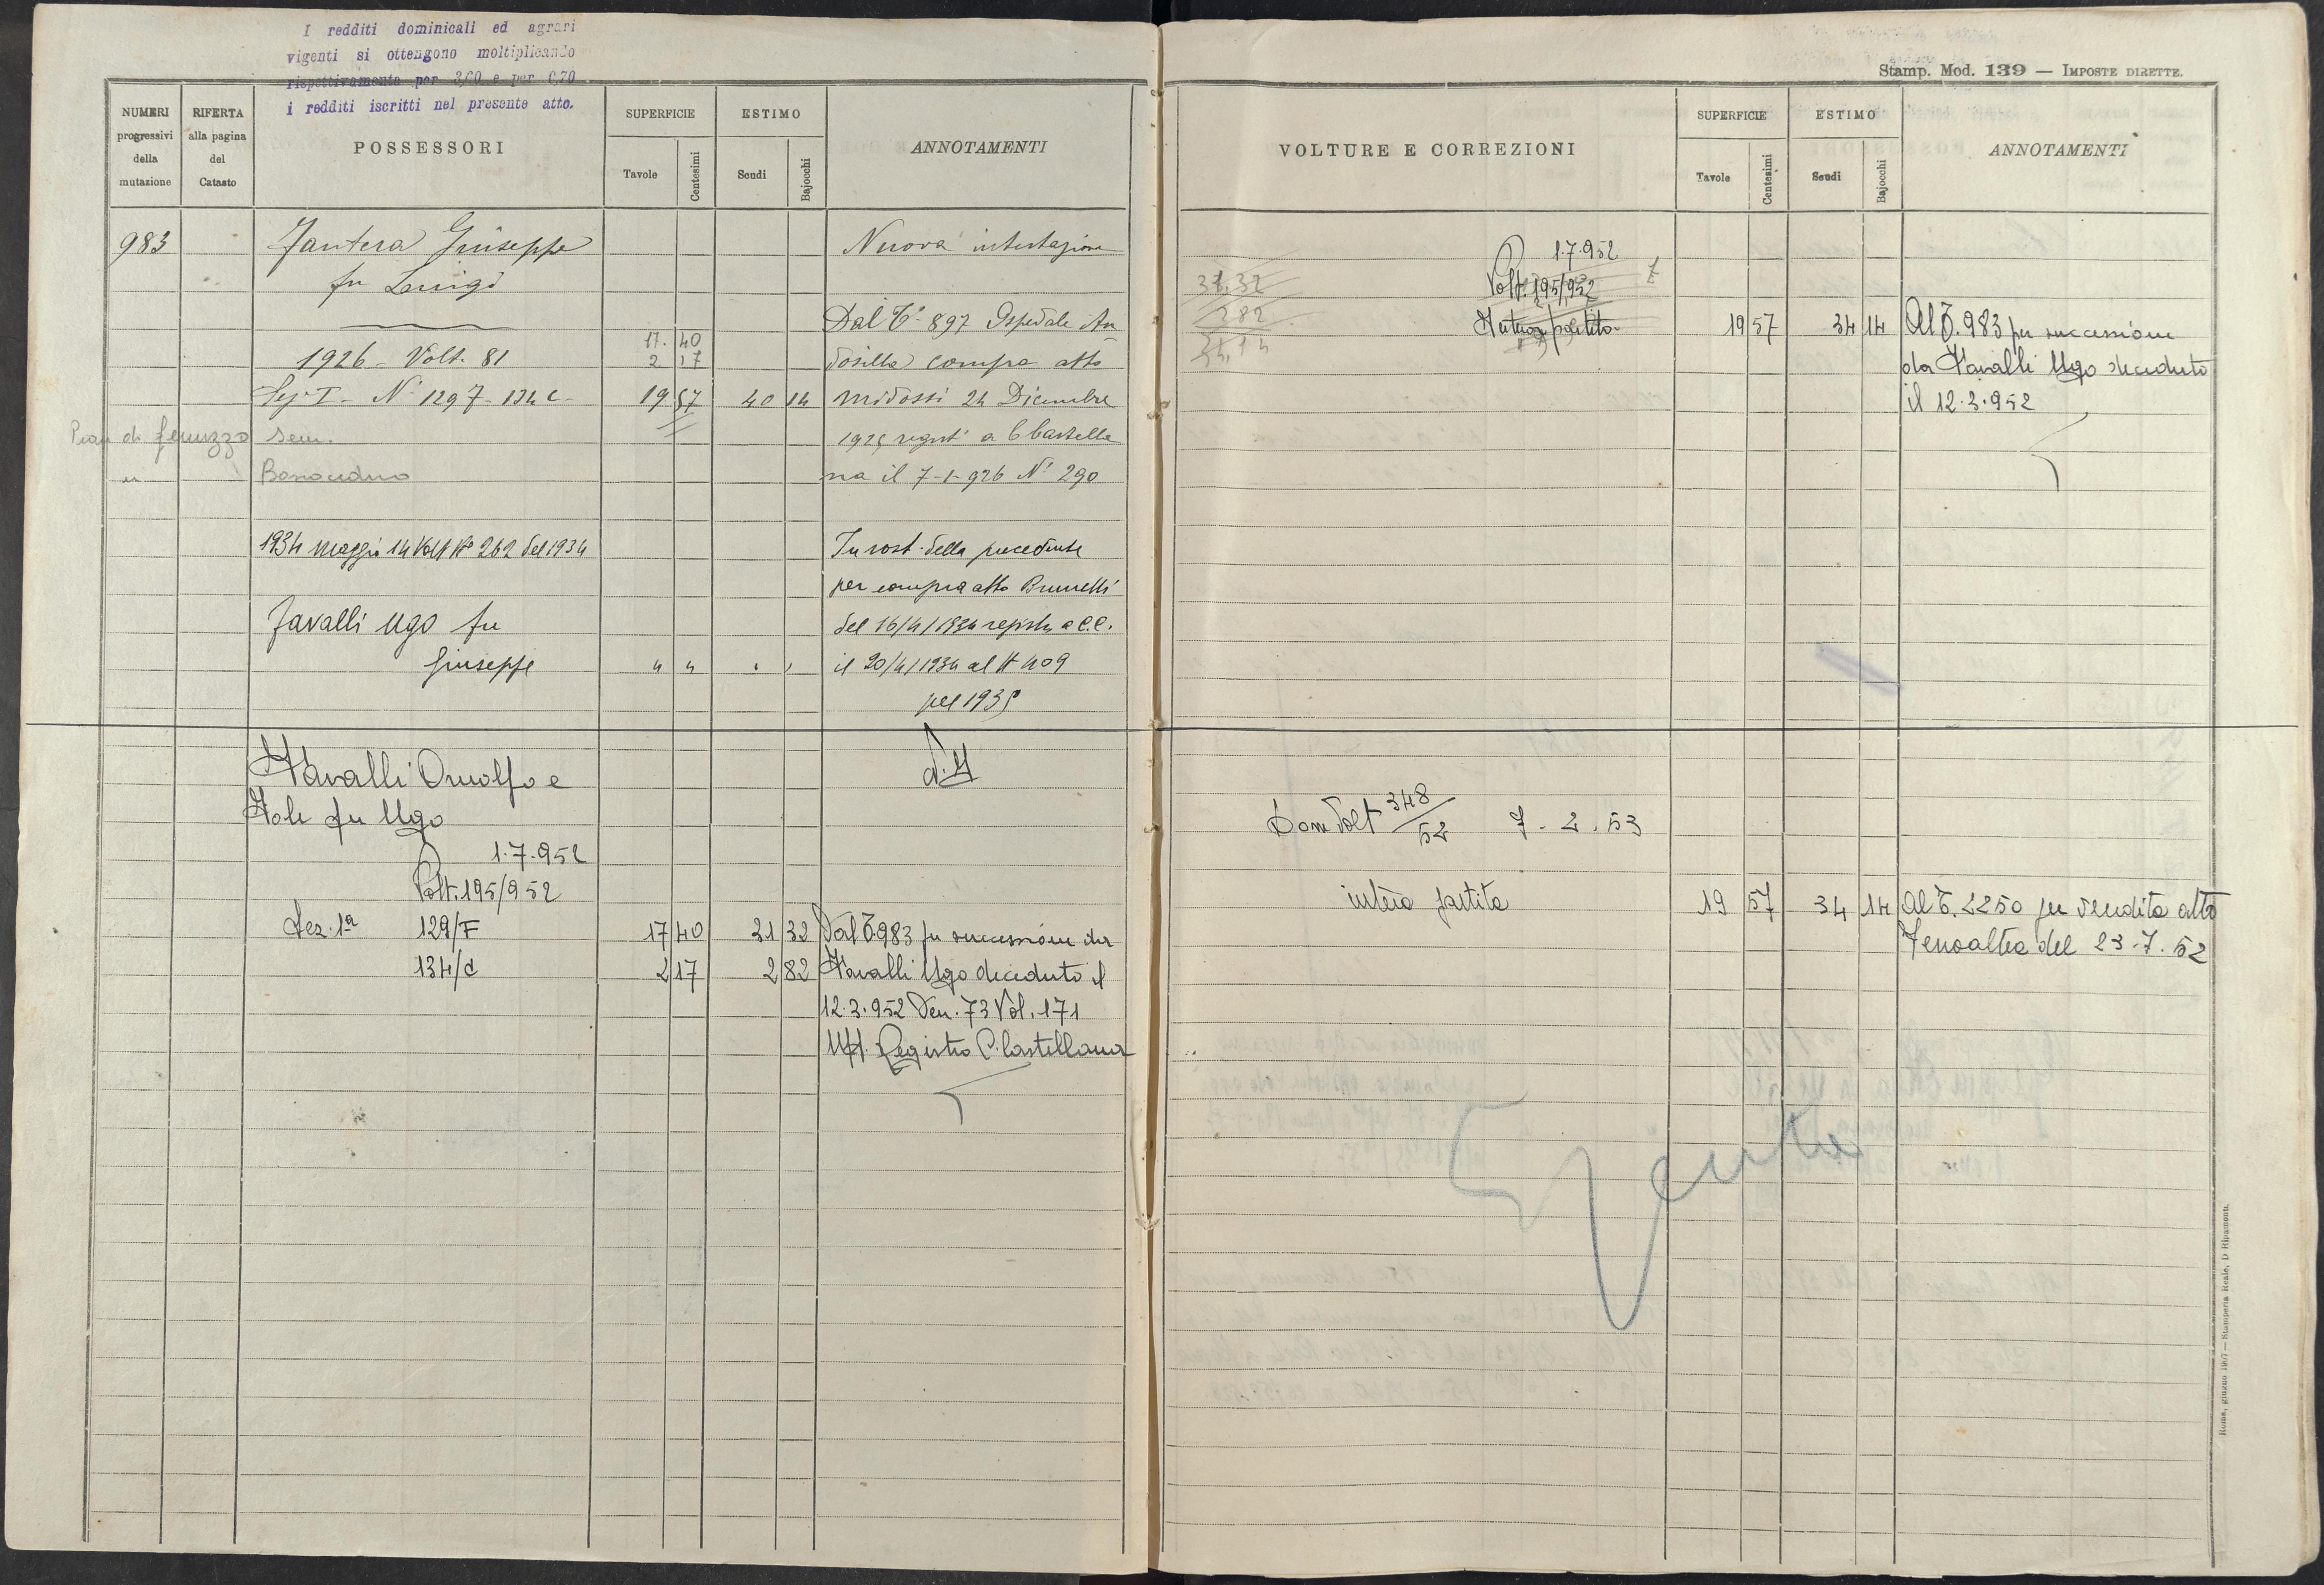 I redditi dominicali ed agrari
vigenti si ottengono moltiplicando
rispettivamente per 3,60 e per 0,70
i redditi iscritti nel presente atto.
NUMERI
progressivi
della
mutazione
RIFERTA
alla pagina
del
Catasto
POSSESSORI
SUPERFICIE
Tavole
Centesimi
ESTIMO
Scudi
Bajocchi
ANNOTAMENTI
983
Giuseppe
fu Luigi
Nuova intestazione
Dal T° 897 Ospedale An
17. 40
1926 - Volt. 81
2 17
dosilla compra atto
Sez I - N° 129 7 - 134 c -
19 57
40 14
Midossi 24 Dicembre
Pian di
sem.
1925 regist° a C Castella
na il 7-1-926 N° 290
1934 maggio 14 Volt N° 262 del 1934
In sost. della precedente
per compra atto Brunelli
Zavalli Ugo fu
del 16/4/1934 registr. a C.C.
Giuseppe
" " " "
il 20/4/1934 al N 409
pel 1935
e
Iole fu Ugo
1.7.952
Volt. 195/952
Sez. 1a 129/F
17 40
31 32
Dal T. 983 per successione da
134/c
2 17
2 82
Ugo deceduto il
12.3.952 Den. 73 Vol. 171
Uff. Registro C. Castellana
Stamp. Mod. 139 — IMPOSTE DIRETTE.
VOLTURE E CORREZIONI
SUPERFICIE
Tavole
Centesimi
ESTIMO
Scudi
Bajocchi
ANNOTAMENTI
1.7.952
31.32
Volt. 195/952
282
34,14
Intera partita
19 57
34 14
Al T. 983 per successione
da Ugo deceduto
il 12.3.952
Volt 348/52 7-2.53
intera partita
19 57
34 14
Al T. 2250 per vendita atto
Fenoaltea del 23-7.52
Roma, giugno 1907 — Stamperia Reale, D. Ripamonti.